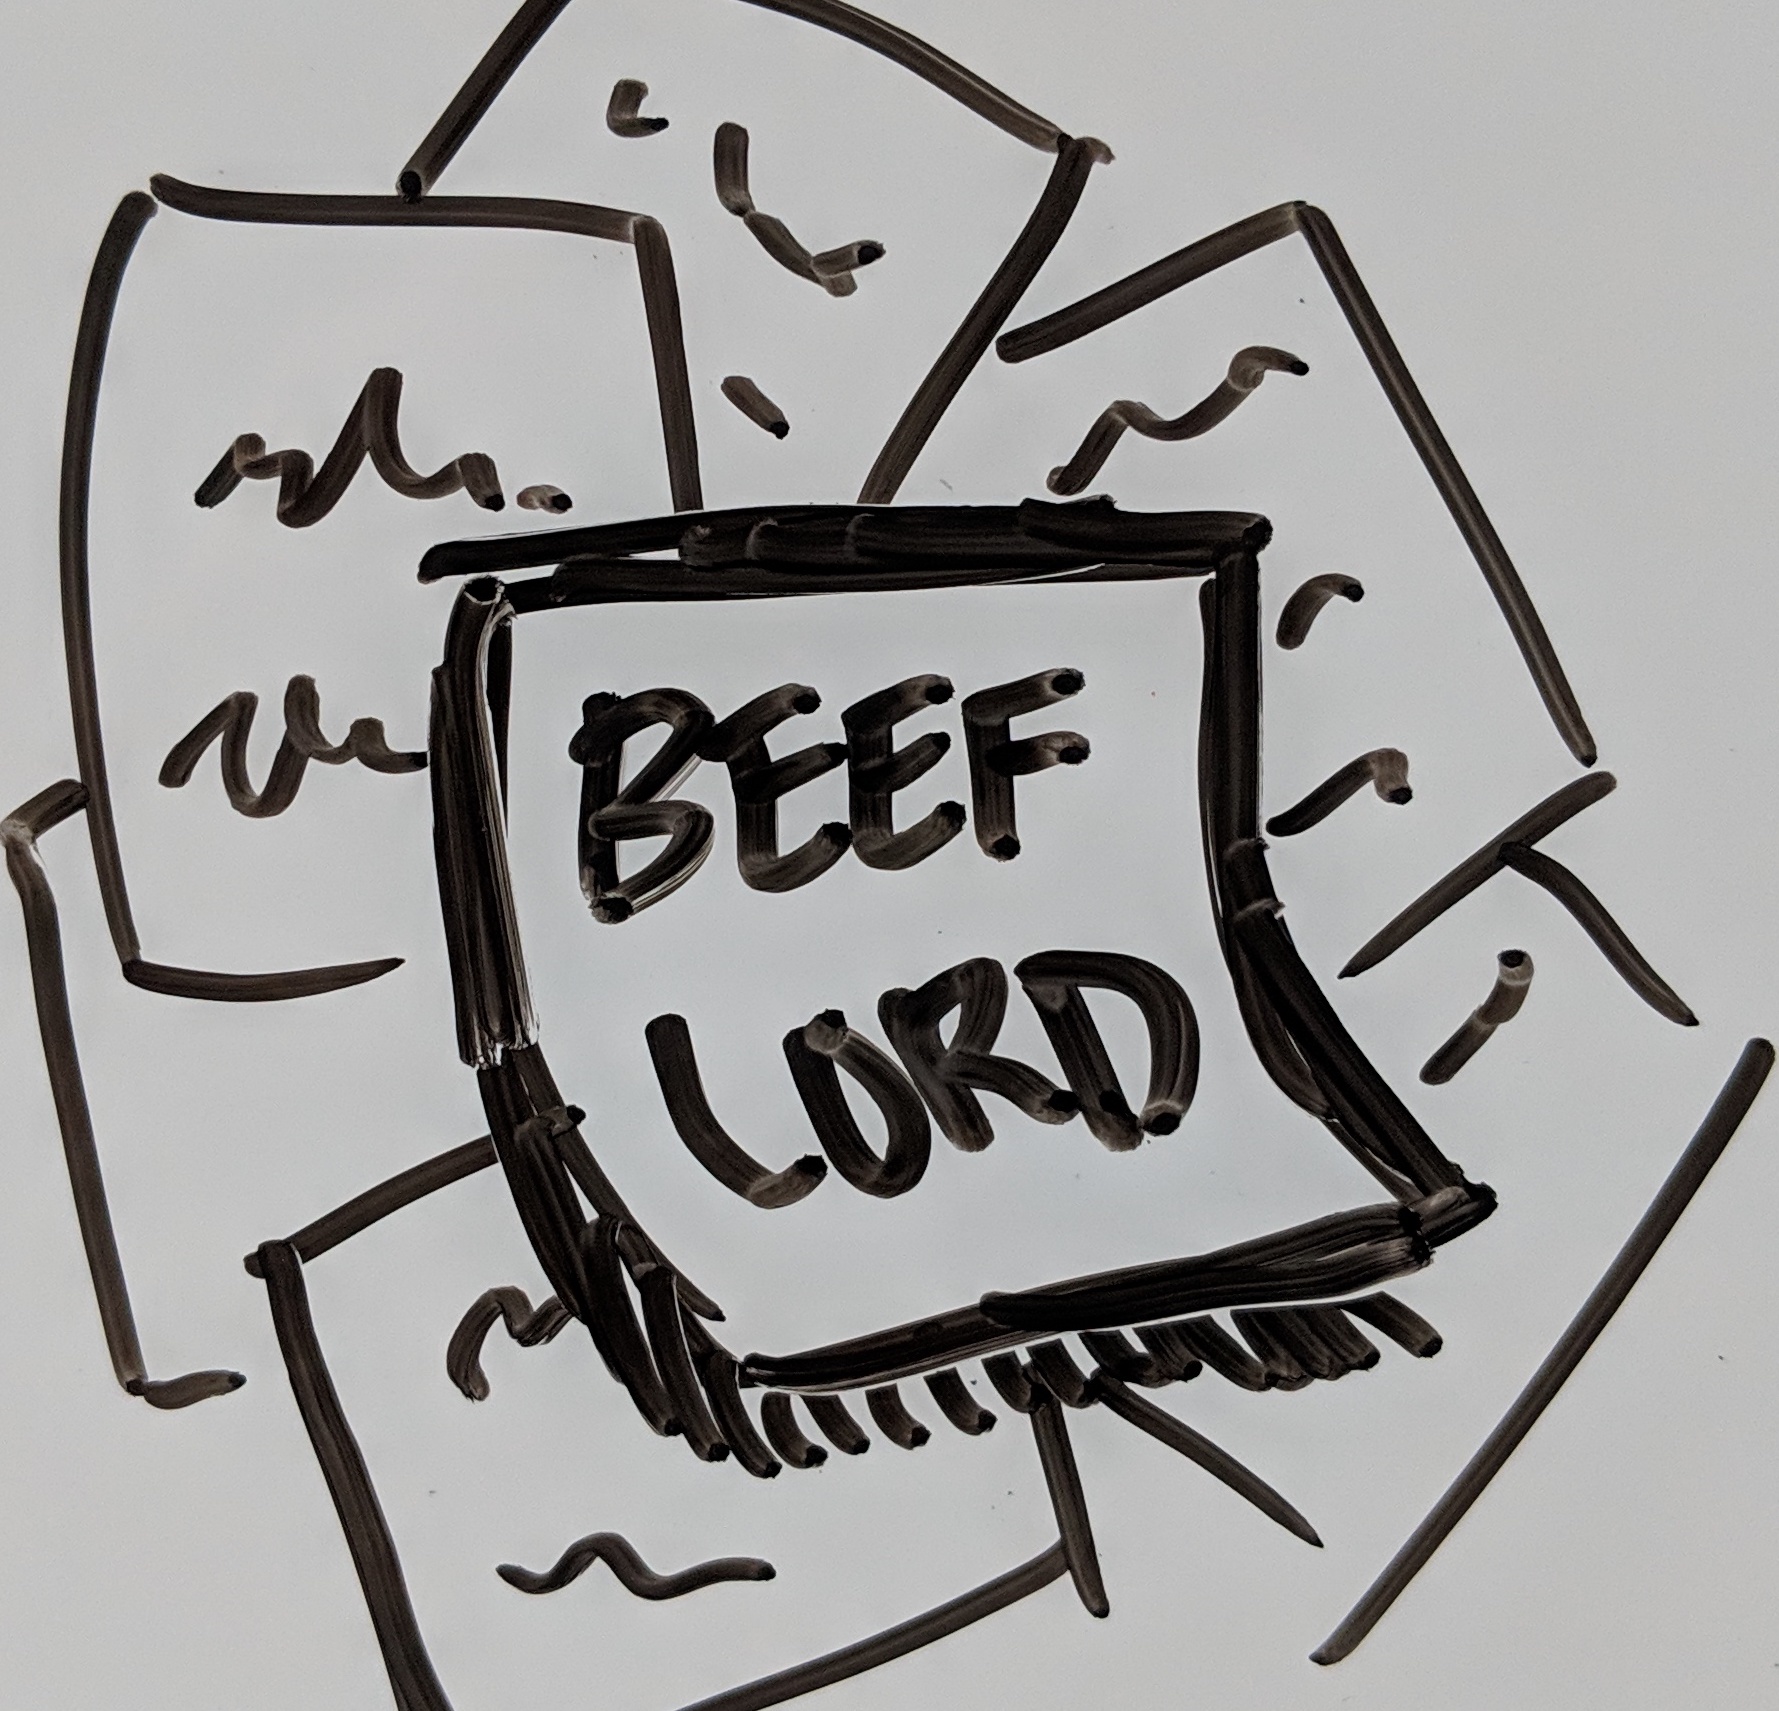 BEEF
LORD